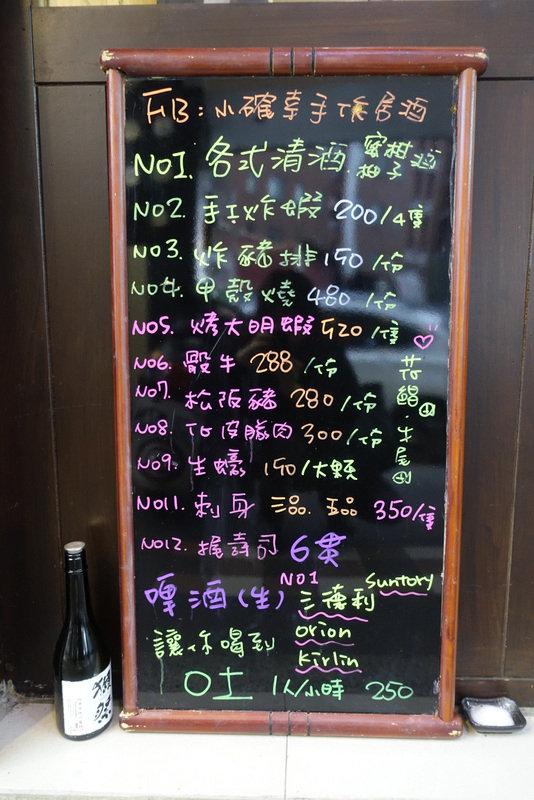 FB:小確幸手作居酒
NO1. 各式清酒. 蜜柑 柚子 酒
NO2. 手工炸蝦 200/4隻
NO3. 炸豬排 150/份
NO4. 甲殼燒 480/份
NO5. 烤大明蝦 420/隻
NO6. 骰牛 288/份
NO7. 松阪豬 280/份
NO8. 下皮腩肉 300/份
NO9. 生蠔 150/大顆
花鯧
牛尾
NO11. 刺身 三品. 五品 350/
NO12. 握壽司 6貫
啤酒(生) NO1 三德利 Suntory
orion
Kirlin
讓你喝到
吐 1人/小時 250
獺祭